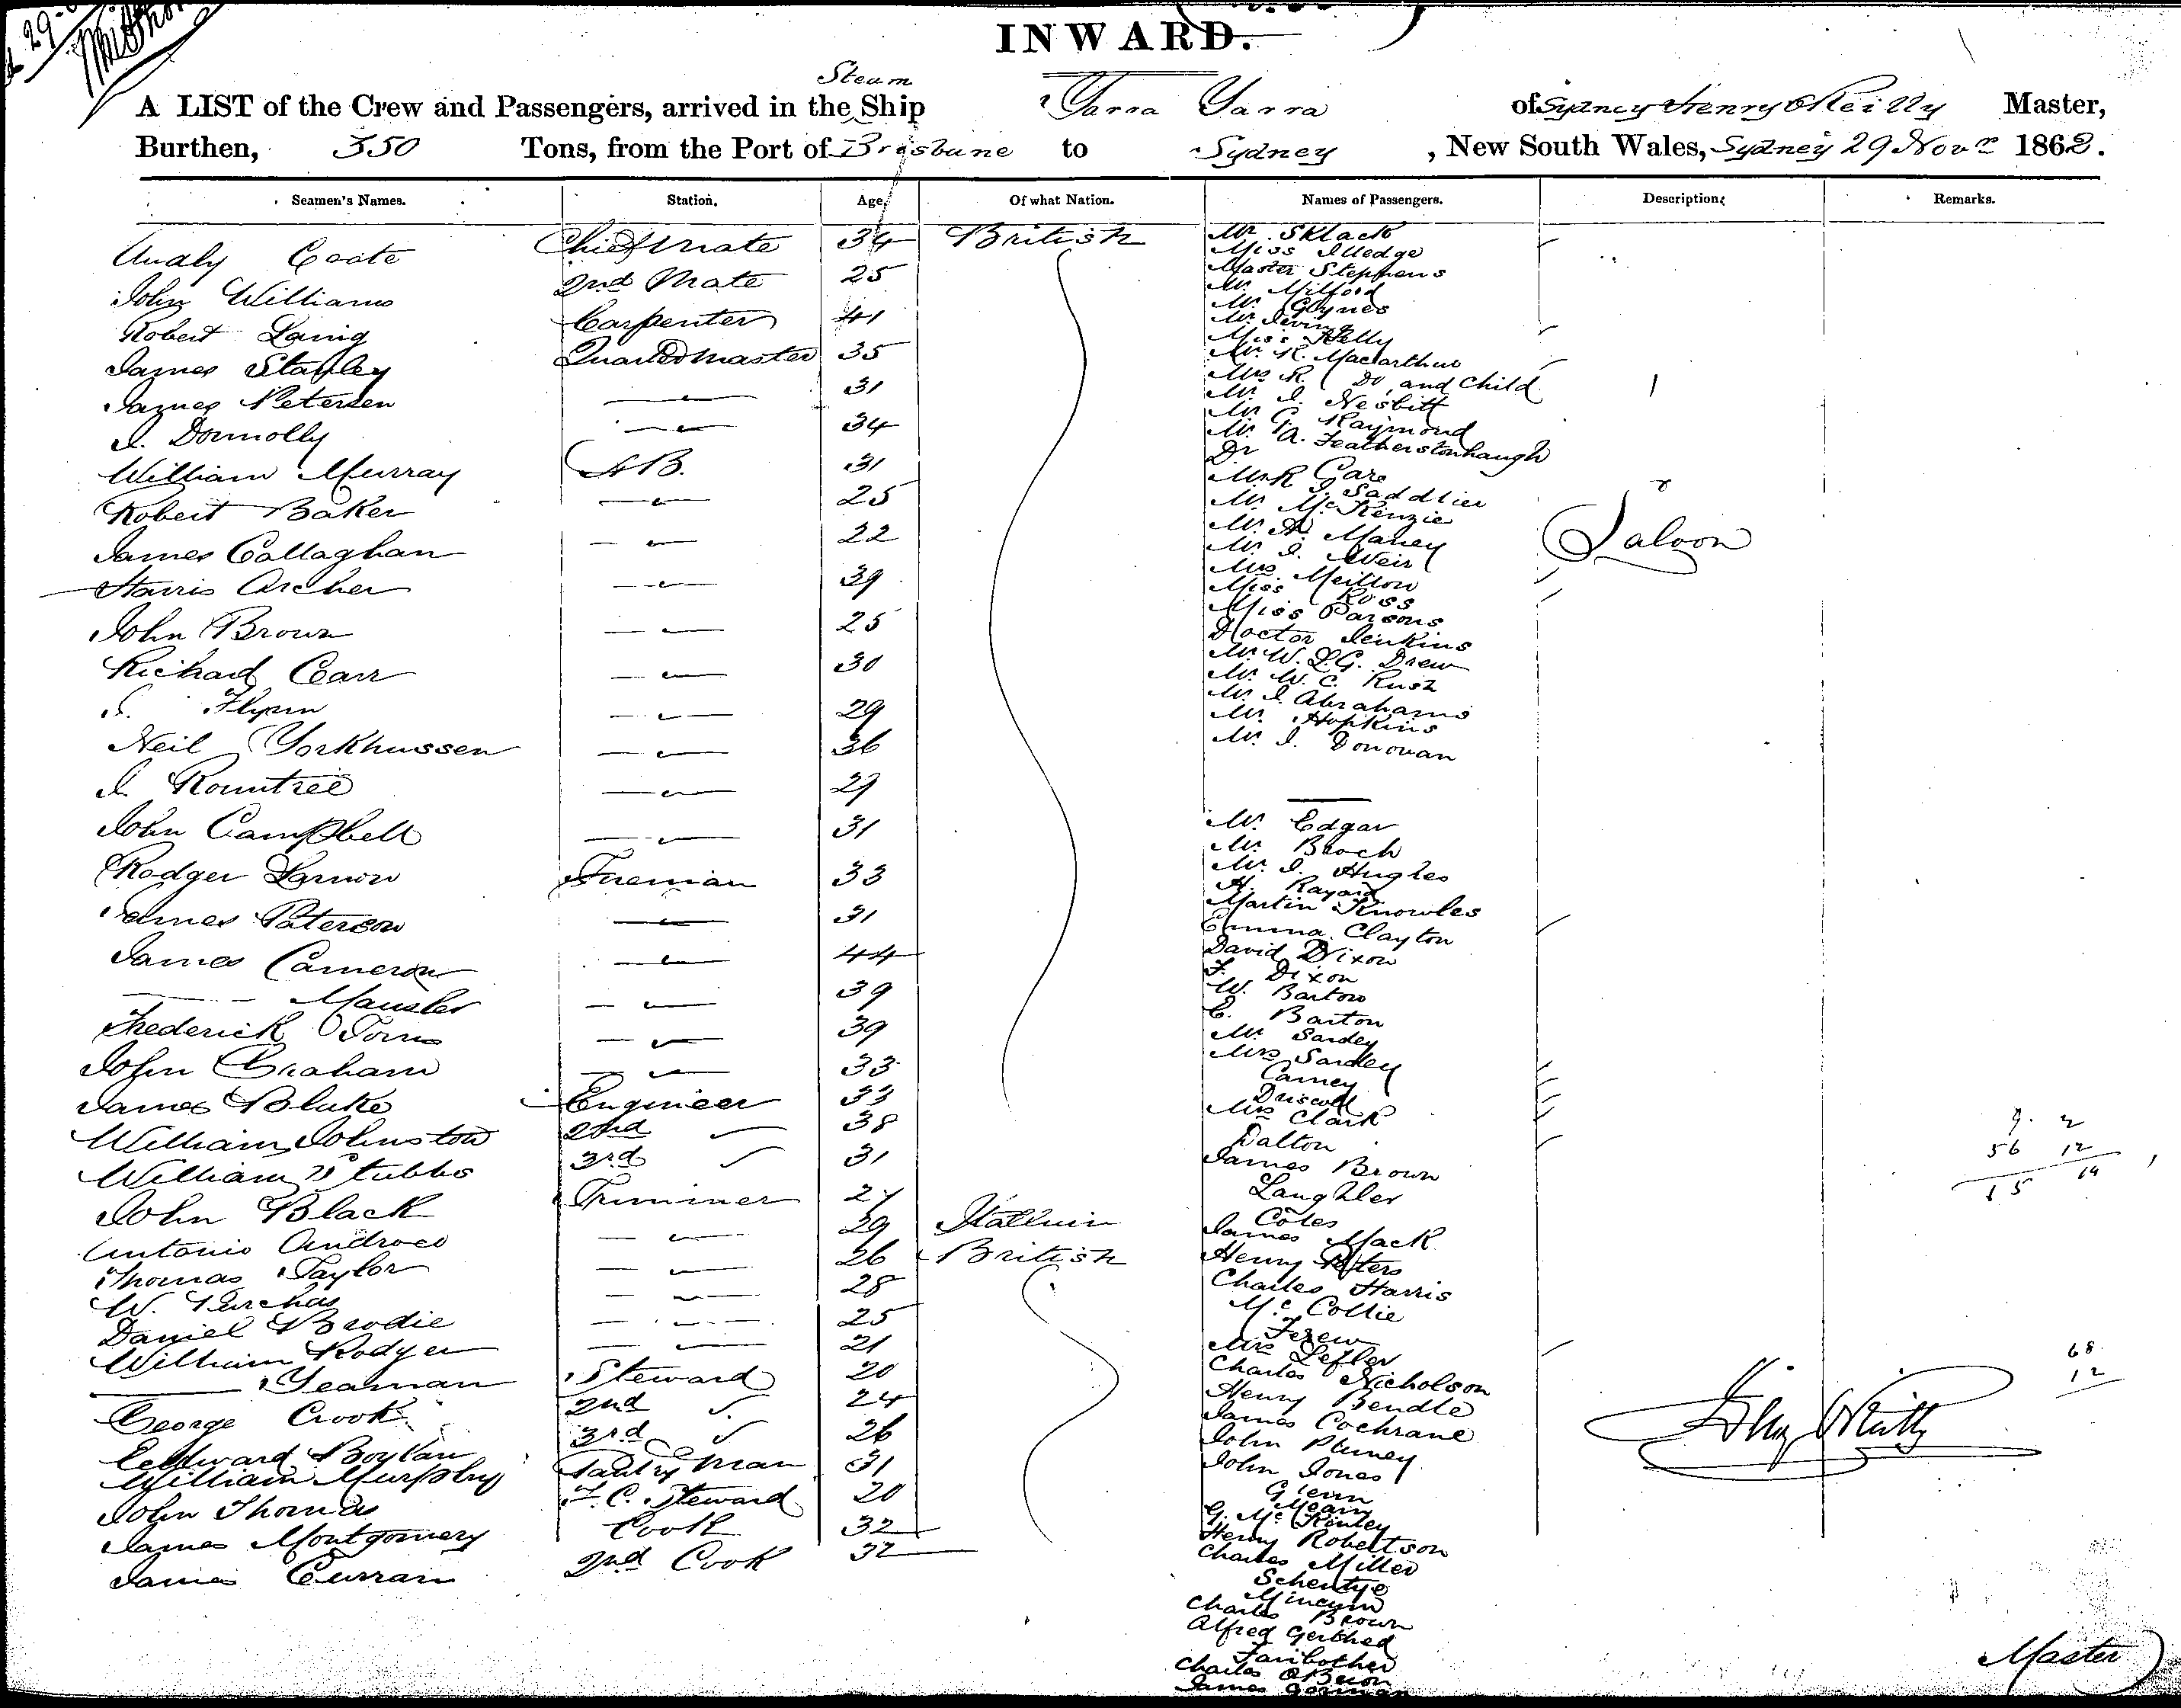 INWARD.
Steam
A LIST of the Crew and Passengers, arrived in the Ship Yarra Yarra of Sydney Henry O'Reilly Master,
Burthen, 350 Tons, from the Port of Brisbane to Sydney, New South Wales, Sydney 29 Novr 1862.
Seamen's Names. Station. Age, Of what Nation. Names of Passengers. Description, Remarks.
Coate Chief Mate 34 British
John Williams 2nd Mate 25
Robert Laing Carpenter 41
James Stanley Quartermaster 35
James Petersen 31
J. Donnolly 34
William Murray AB. 31
Robert Baker 25
James Callaghan 22
Harris Archer 39
John Brown 25
Richard Carr 30
Flynn 29
Neil Yorkhussen 36
J. Rountree 29
John Campbell 31
Rodger Fireman 33
James Paterson 31
James Cameron 44
39
Frederick 39
John Graham 33
James Blake Engineer 33
William Johnston 2nd 38
William Stubbs 3rd 31
John Black Trimmer 27
Antonio 29 Italian
Thomas Taylor 26 British
W. Purchas 28
Daniel Brodie 25
William Rodger 21
Yeaman Steward 20
George Crook 2nd 24
Edward Boylan 3rd 26
William Murphy Pantry Man 31
John Thomas F. C. Steward 20
James Montgomery Cook 32
James Curran 2nd Cook 32
Mr. Sklack
Miss Illedge
Master Stephens
Mr. Milford
Mr. Goynes
Mr. Irving
Miss Kelly
Mr. R. Macarthur
Mrs R. Do and Child
Mr. J. Nesbitt
Mr. G. Raymond
Mr. A. Featherstonhaugh
Dr Gare
Mr. J. Saddlier
Mr. McKenzie
Mr. A. Maney
Mr. J. Weir
Mrs. Meillon
Miss Ross
Miss Parsons
Doctor Jenkins
Mr. W. L. G. Drew
Mr. W. C. Rush
Mr. J. Abrahams
Mr. Hopkins
Mr. J. Donovan
Saloon
Mr. Edgar
Mr. Bloch
Mr. J. Hughes
Martin Knowles
Emma Clayton
David Dixon
F. Dixon
W. Barton
C. Barton
Mr. Sardey
Mrs Sardey
Carney
Driscoll
Mrs Clark
Dalton
James Brown
Laughler
Coles
James Mack
Henry Peters
Charles Harris
McCollie
Mrs Lefler
Charles Nicholson
Henry Bendle
James Cochrane
John Plumey
John Jones
Glenn
G. McKinley
Henry Robertson
Charles Miller
Charles Brown
Alfred Gerthed
Charles
James
9. 2
56 12
15 14
68
12
Master